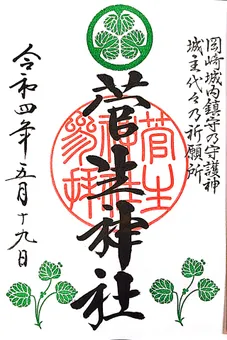 岡崎城内鎮守乃守護神
城主代々乃祈願所
菅生神社
菅生神社参拝
令和四年五月十九日